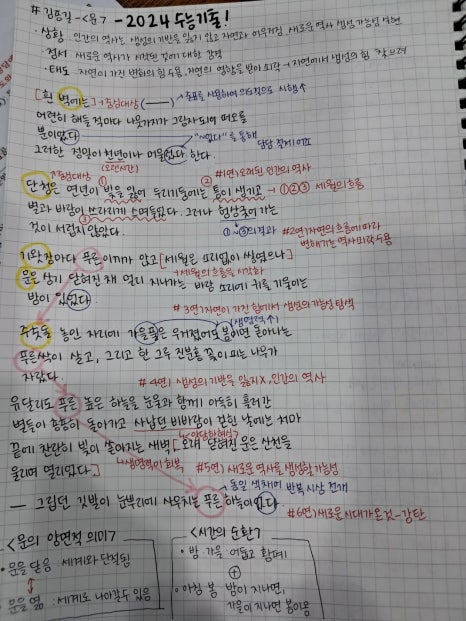 # 김종길 - <문> - 2024 수능기출!
· 상황 : 인간의 역사는 생성의 기반을 잃지 않고 자연과 어우러짐, 새로운 역사 생성 가능성
· 정서 : 새로운 역사가 시작된 것에 대한 감격
· 태도 : 자연이 가진 변화의 힘 수용, 자연의 영향을 받아 쇠락 → 자연에서 생성의 힘
[흰 벽에는] → 중심대상 (——) → 줄표를 사용하여
어련히 해들 적마다 나뭇가지가 그림자 되어 떠오를
뿐이었다 "~었다"를 통해
그러한 정밀이 천년이나 머물렀다 한다. 담담
(오랜시간)
중심대상 ① ② #1연) 오래된 인간의 역사
단청은 연년이 빛을 잃어 두리기둥에는 틈이 생기고 → ①②③ 세월의 흐름
별과 바람이 쓰라리게 스며들었다. 그러나 험상궂어 가는
③
것이 서럽지 않았다. ①~③의 결과 #2연) 자연의 흐름에 따라
변해가는 역사 쇠락 수용
기왓장마다 푸른 이끼가 앉고 [세월은 소리없이 쌓였으나]
→ 세월의 흐름을 시각화
문은 상기 닫혀진 채 멀리 지나가는 바람 소리에 귀를 기울이는
밤이 있었다.
#3연) 자연이 가진 힘에서 생성의 가능성 탐색
(생명력↑)
주춧돌 놓인 자리에 가을풀은 우거졌어도 봄이면 돋아나는
푸른 싹이 살고, 그리고 한 그루 진분홍 꽃이 피는 나무가
자랐다.
#4연) 생성의 기반을 잃지X, 인간의 역사
유달리도 푸른 높은 하늘을 눈물과 함께 아득히 흘러간
별들이 총총히 돌아오고 사납던 비바람이 걷힌 낡은 처마
끝에 찬란히 빛이 쏟아지는 새벽 [오래 닫혀진 문은 산천을
울리며 열리었다.]
↳ 생명력의 회복 #5연) 새로운 역사를 생성할 가능성
동일 색채어 반복, 시상 전개
— 그립던 깃발이 눈뿌리에 사무치는 푸른 하늘이었다.
#6연) 새로운 시대가 온 것 - 감탄
<문의 양면적 의미>
· 문을 닫음 : 세계와 단절됨
↕
· 문을 엶 : 세계로 나아갈 수 있음
<시간의 순환>
· 밤, 가을 : 어둡고 황폐
⊕
· 아침, 봄 : 밤이 지나면,
가을이 지나면 봄이 옴